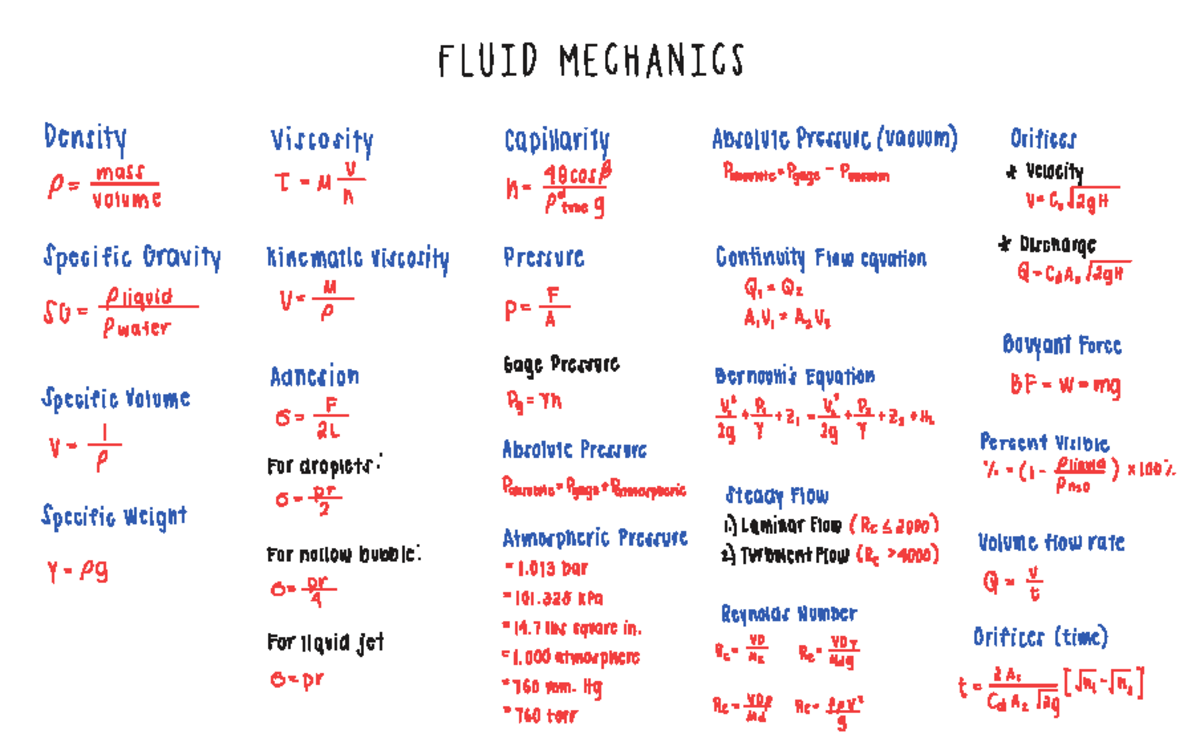 FLUID MECHANICS
Density
ρ = mass / volume
Specific Gravity
SG = ρ liquid / ρ water
Specific Volume
V = 1 / ρ
Specific Weight
γ = ρg
Viscosity
τ = μ V / h
Kinematic Viscosity
V = μ / ρ
Adhesion
σ = F / 2L
For droplets:
σ = pr / 2
For hollow bubble:
σ = pr / 4
For liquid jet
σ = pr
Capillarity
h = 4θ cos β / ρ d tube g
Pressure
P = F / A
Gage Pressure
Pg = γh
Absolute Pressure
Pabsolute = Pgage + Patmospheric
Atmospheric Pressure
= 1.013 bar
= 101.325 kPa
= 14.7 lbs square in.
= 1.000 atmosphere
= 760 mm. Hg
= 760 torr
Absolute Pressure (vacuum)
Pabsolute = Pgage - Pvacuum
Continuity Flow equation
Q₁ = Q₂
A₁V₁ = A₂V₂
Bernoulli's Equation
V₁² / 2g + P₁ / γ + Z₁ = V₂² / 2g + P₂ / γ + Z₂ + HL
Steady Flow
1.) Laminar Flow (Re ≤ 2000)
2.) Turbulent Flow (Re > 4000)
Reynolds Number
Re = VD / μk Re = VDγ / μdg
Re = VDρ / μd
Orifices
* Velocity
V = Cv √2gH
* Discharge
Q = Cd Ao √2gH
Bouyant Force
BF = W = mg
Percent Visible
% = (1 - ρliquid / ρhso) x 100%
Volume flow rate
Q = V / t
Orifices (time)
t = 2 As / Cd A₂ √2g [√h₁ - √h₂]